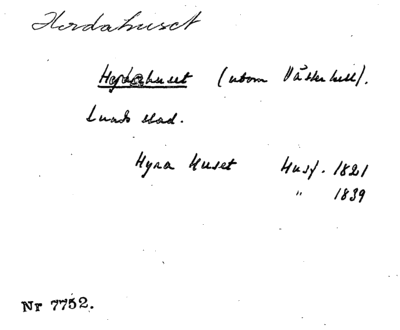 Hordahuset
Hordahuset (utom Västerhell).
Lunds stad.
Hyra Huset Husf. 1821
" 1839
Nr 7752.